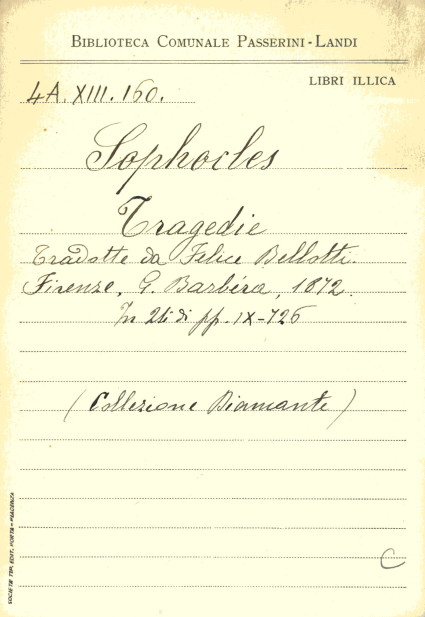 BIBLIOTECA COMUNALE PASSERINI-LANDI
LIBRI ILLICA
4A. XIII. 160.
Sophocles
Tragedie
Tradotte da Felice Bellotti.
Firenze, G. Barbéra, 1872.
In 24° di pp. IX-726
(Collezione Diamante)
C
SOCIETÀ TIP. EDIT. PORTA - PIACENZA